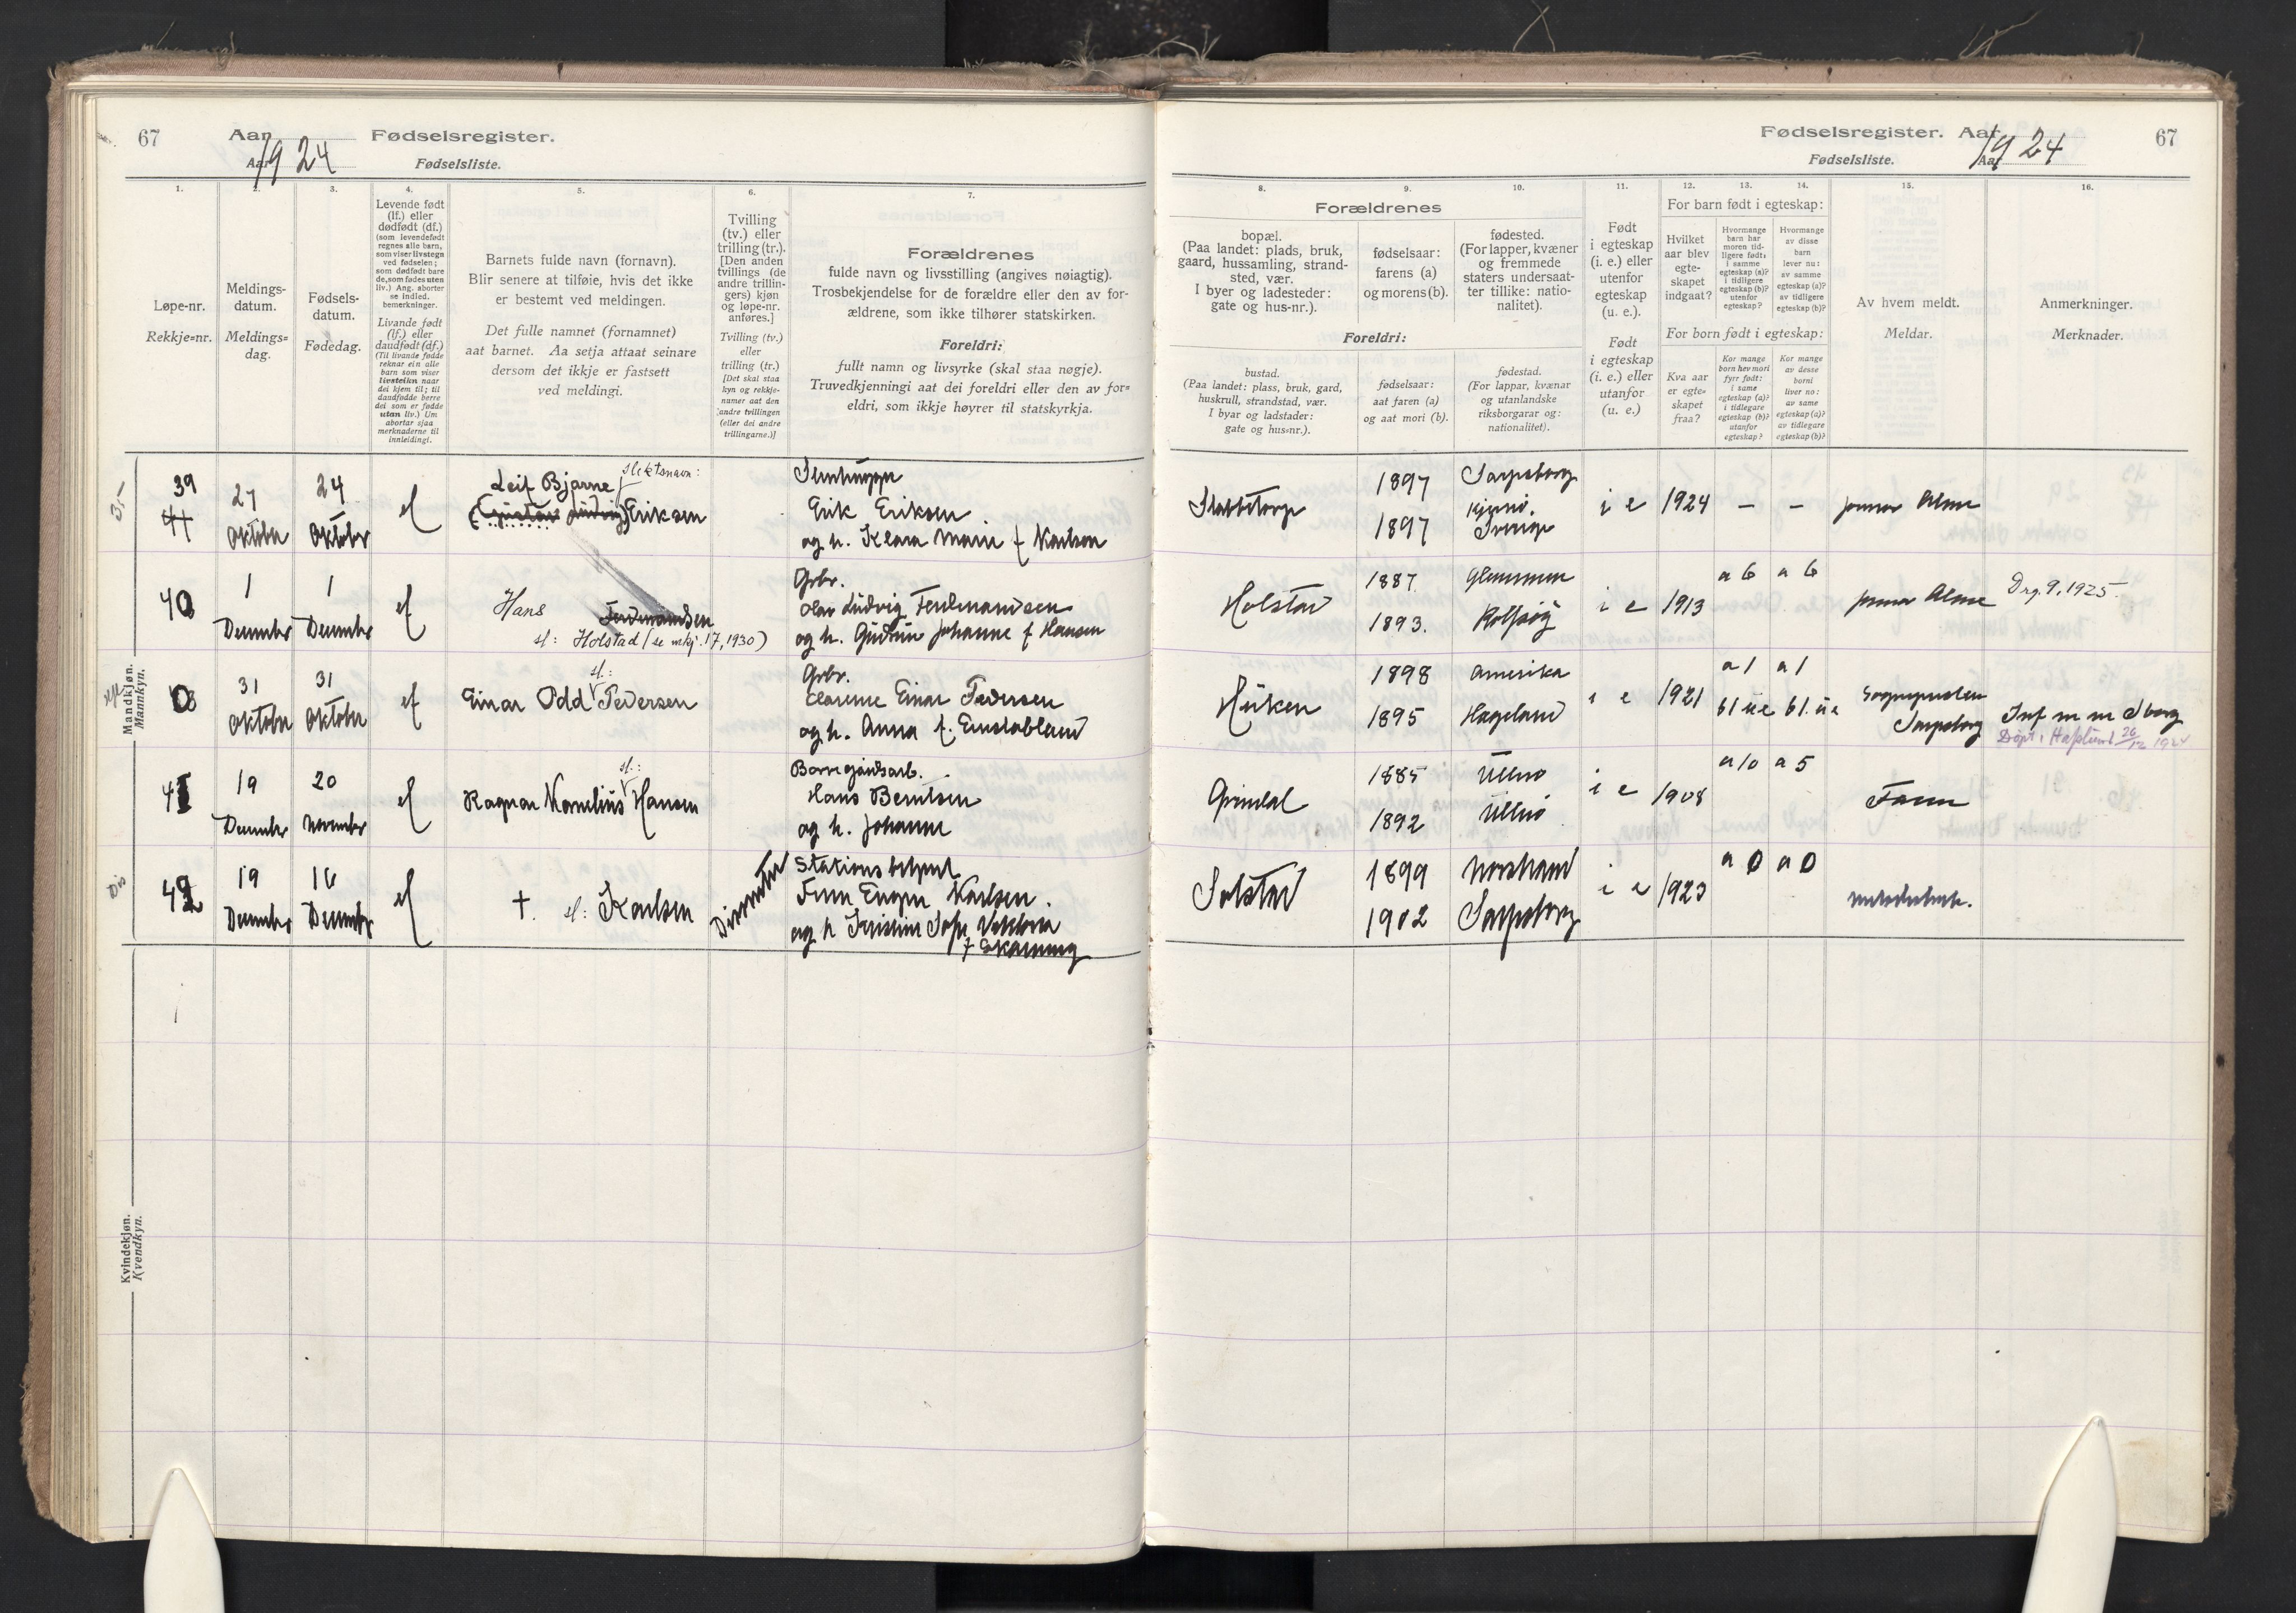 67
Aar
Fødselsregister.
Aar 1924
Fødselsliste.
1.
2.
3.
4.
5.
6.
7.
Løpe-nr.
Rekkje=nr.
Meldings-
datum.
Meldings=
dag.
Fødsels-
datum.
Fødedag.
Levende født
(lf.) eller
dødfødt (df.)
(som levendefødt
regnes alle barn,
som viser livstegn
ved fødselen;
som dødfødt bare
de, som fødes uten
liv.) Ang. aborter
se indled.
bemerkninger.
Livande født
(lf.) eller
daudfødt (df.)
(Til livande fødde
reknar ein alle
barn som viser
livsteikn naar
dei kjem til; til
daudfødde berre
dei som er fødde
utan liv.) Um
abortar sjaa
merknaderne til
innleidingi.
Barnets fulde navn (fornavn).
Blir senere at tilføie, hvis det ikke
er bestemt ved meldingen.
Det fulle namnet (fornamnet)
aat barnet. Aa setja attaat seinare
dersom det ikkje er fastsett
ved meldingi.
Tvilling
(tv.) eller
trilling (tr.).
[Den anden
tvillings (de
andre trillin-
gers) kjøn
og løpe-nr.
anføres.]
Tvilling (tv.)
eller
trilling (tr.)
[Det skal staa
kyn og rekkje-
numer aat den
andre tvillingen
(eller dei andre
trillingarne.)]
Forældrenes
fulde navn og livsstilling (angives nøiagtig).
Trosbekjendelse for de forældre eller den av for-
ældrene, som ikke tilhører statskirken.
Foreldri:
fullt namn og livsyrke (skal staa nøgje).
Truvedkjenningi aat dei foreldri eller den av for=
eldri, som ikkje høyrer til statskyrkja.
Mandkjøn.
Mannkyn.
3,-
39
41
27
Oktober
24
Oktober
lf
slektsnavn:
Leif Bjarne
(Gustav Ludvig) Eriksen
Erik Eriksen
og h. Klara Marie f Karlsen
40
1
December
1
December
lf
Hans
Ferdinandsen
sl: Holstad (se mrkj. 17, 1930)
Grbr.
Olav Ludvig Ferdinandsen
og h. Gudrun Johanne f Hansen
0
31
Oktober
31
Oktober
lf
sl.:
Einar Odd Pedersen
Grbr.
Clarence Einar Pedersen
og h. Anna f.
41
19
December
20
November
lf
sl.:
Ragnar Kornelius Hansen
Borregaardsarb.
Hans Berntsen
og h. Johanne
42
19
December
16
December
lf
†. sl: Karlsen
Dissenter
Stationsbetjent
Finn Eugen Karlsen.
og h Kristine Sofie Viktoria
f Skauning
Kvindekjøn.
Kvendkyn.
Fødselsregister. Aar
67
Fødselsliste.
Aar 1924
8.
9.
10.
11.
12.
13.
14.
15.
16.
Forældrenes
bopæl.
(Paa landet: plads, bruk,
gaard, hussamling, strand-
sted, vær.
I byer og ladesteder:
gate og hus-nr.).
fødselsaar:
farens (a)
og morens (b).
fødested.
(For lapper, kvæner
og fremmede
staters undersaat-
ter tillike: natio-
nalitet).
Foreldri:
bustad.
(Paa landet: plass, bruk, gard,
huskrull, strandstad, vær.
I byar og ladstader:
gate og hus=nr.).
fødselsaar:
aat faren (a)
og aat mori (b).
fødestad.
(For lappar, kvænar
og utanlandske
riksborgarar og:
nationalitet).
Født
i egteskap
(i. e.) eller
utenfor
egteskap
(u. e.).
Født
i egteskap
(i. e.) eller
utanfor
(u. e.)
For barn født i egteskap:
Hvilket
aar blev
egte-
skapet
indgaat?
Hvormange
barn har
moren tid-
ligere født:
i samme
egteskap (a)?
i tidligere
egteskap (b)?
utenfor
egteskap?
Hvormange
av disse
barn
lever nu:
av samme
egteskap (a)?
av tidligere
egteskap (b)?
For born født i egteskap:
Kva aar
er egte-
skapet
fraa?
Kor mange
born hev mori
fyrr født:
i same
egteskap (a)?
i tidlegare
egteskap (b)?
utanfor
egteskap?
Kor mange
av desse
borni
liver no:
av same
egteskap (a)?
av tidlegare
egteskap (b)?
Av hvem meldt.
Meldar.
Anmerkninger.
Merknader.
1897
1897
Sarpsborg
Sverige
i e
1924
-
-
Holstad
1887
1893.
Glemmen
Rolfsøy
i e
1913
a 6
a 6
Drg. 9, 1925.
Hüken
1898
1895
Amerika
Hægeland
i e
1921
a 1
b1 ue
a 1
b1. ue
Sognepresten
Sarpsborg
Døpt i Haslund 26/12 1924
Grindal
1885
1892
Ullerø
Ullerø
i e
1908
a 10
a 5
Faren
Solstad
1899
1902
Sarpsborg
i e
1923
a 0
a 0